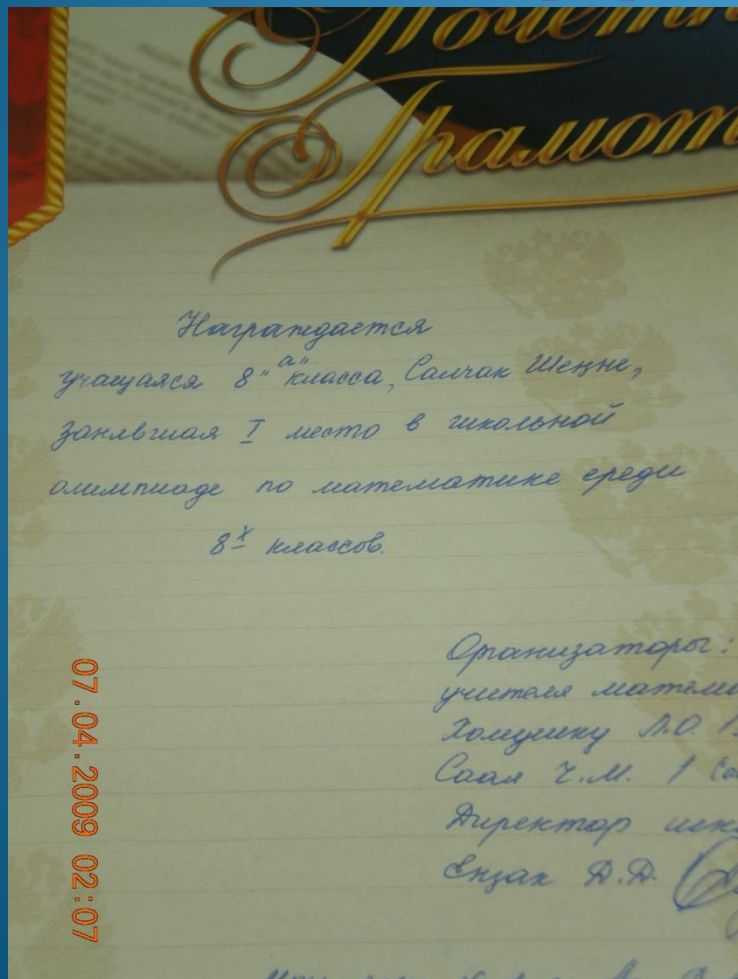 Почетн
Грамот
Награждается
учащаяся 8 "а" класса, Салчак Шеңне,
занявшая I место в школьной
олимпиаде по математике среди
8х классов.
Организаторы:
учителя матема
Хомушку Л.О.
Саая Ч.М.
Директор шко
Ензак Д.Д.
07.04.2009 02:07